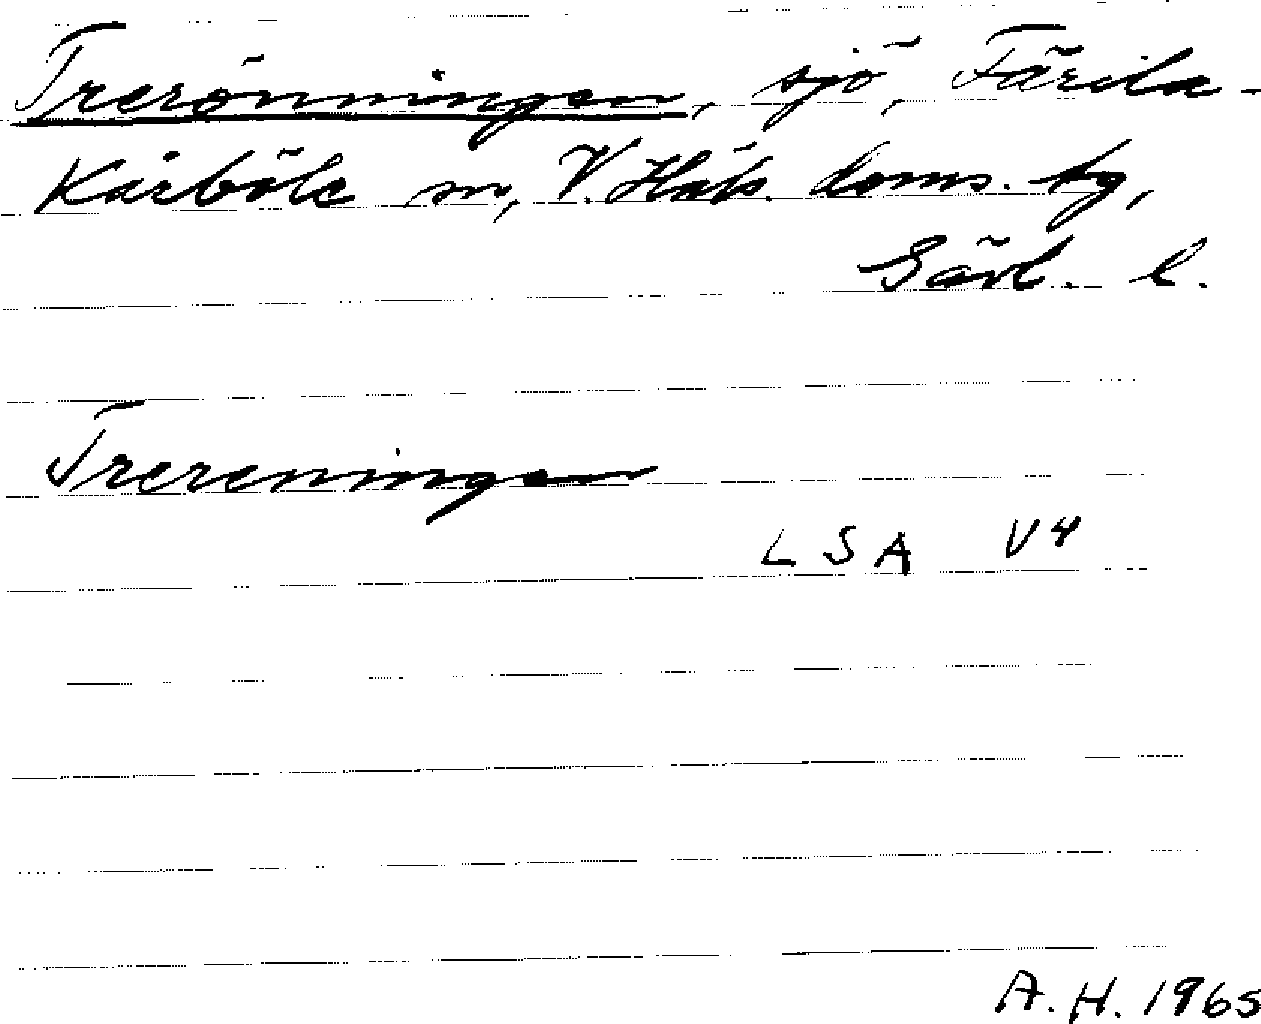 Trerönningen, sjö, Färila-
Kårböle sn, V. Häls. doms. tg,
Gävl. l.
Trereningen
LSA V4
A.H. 1965